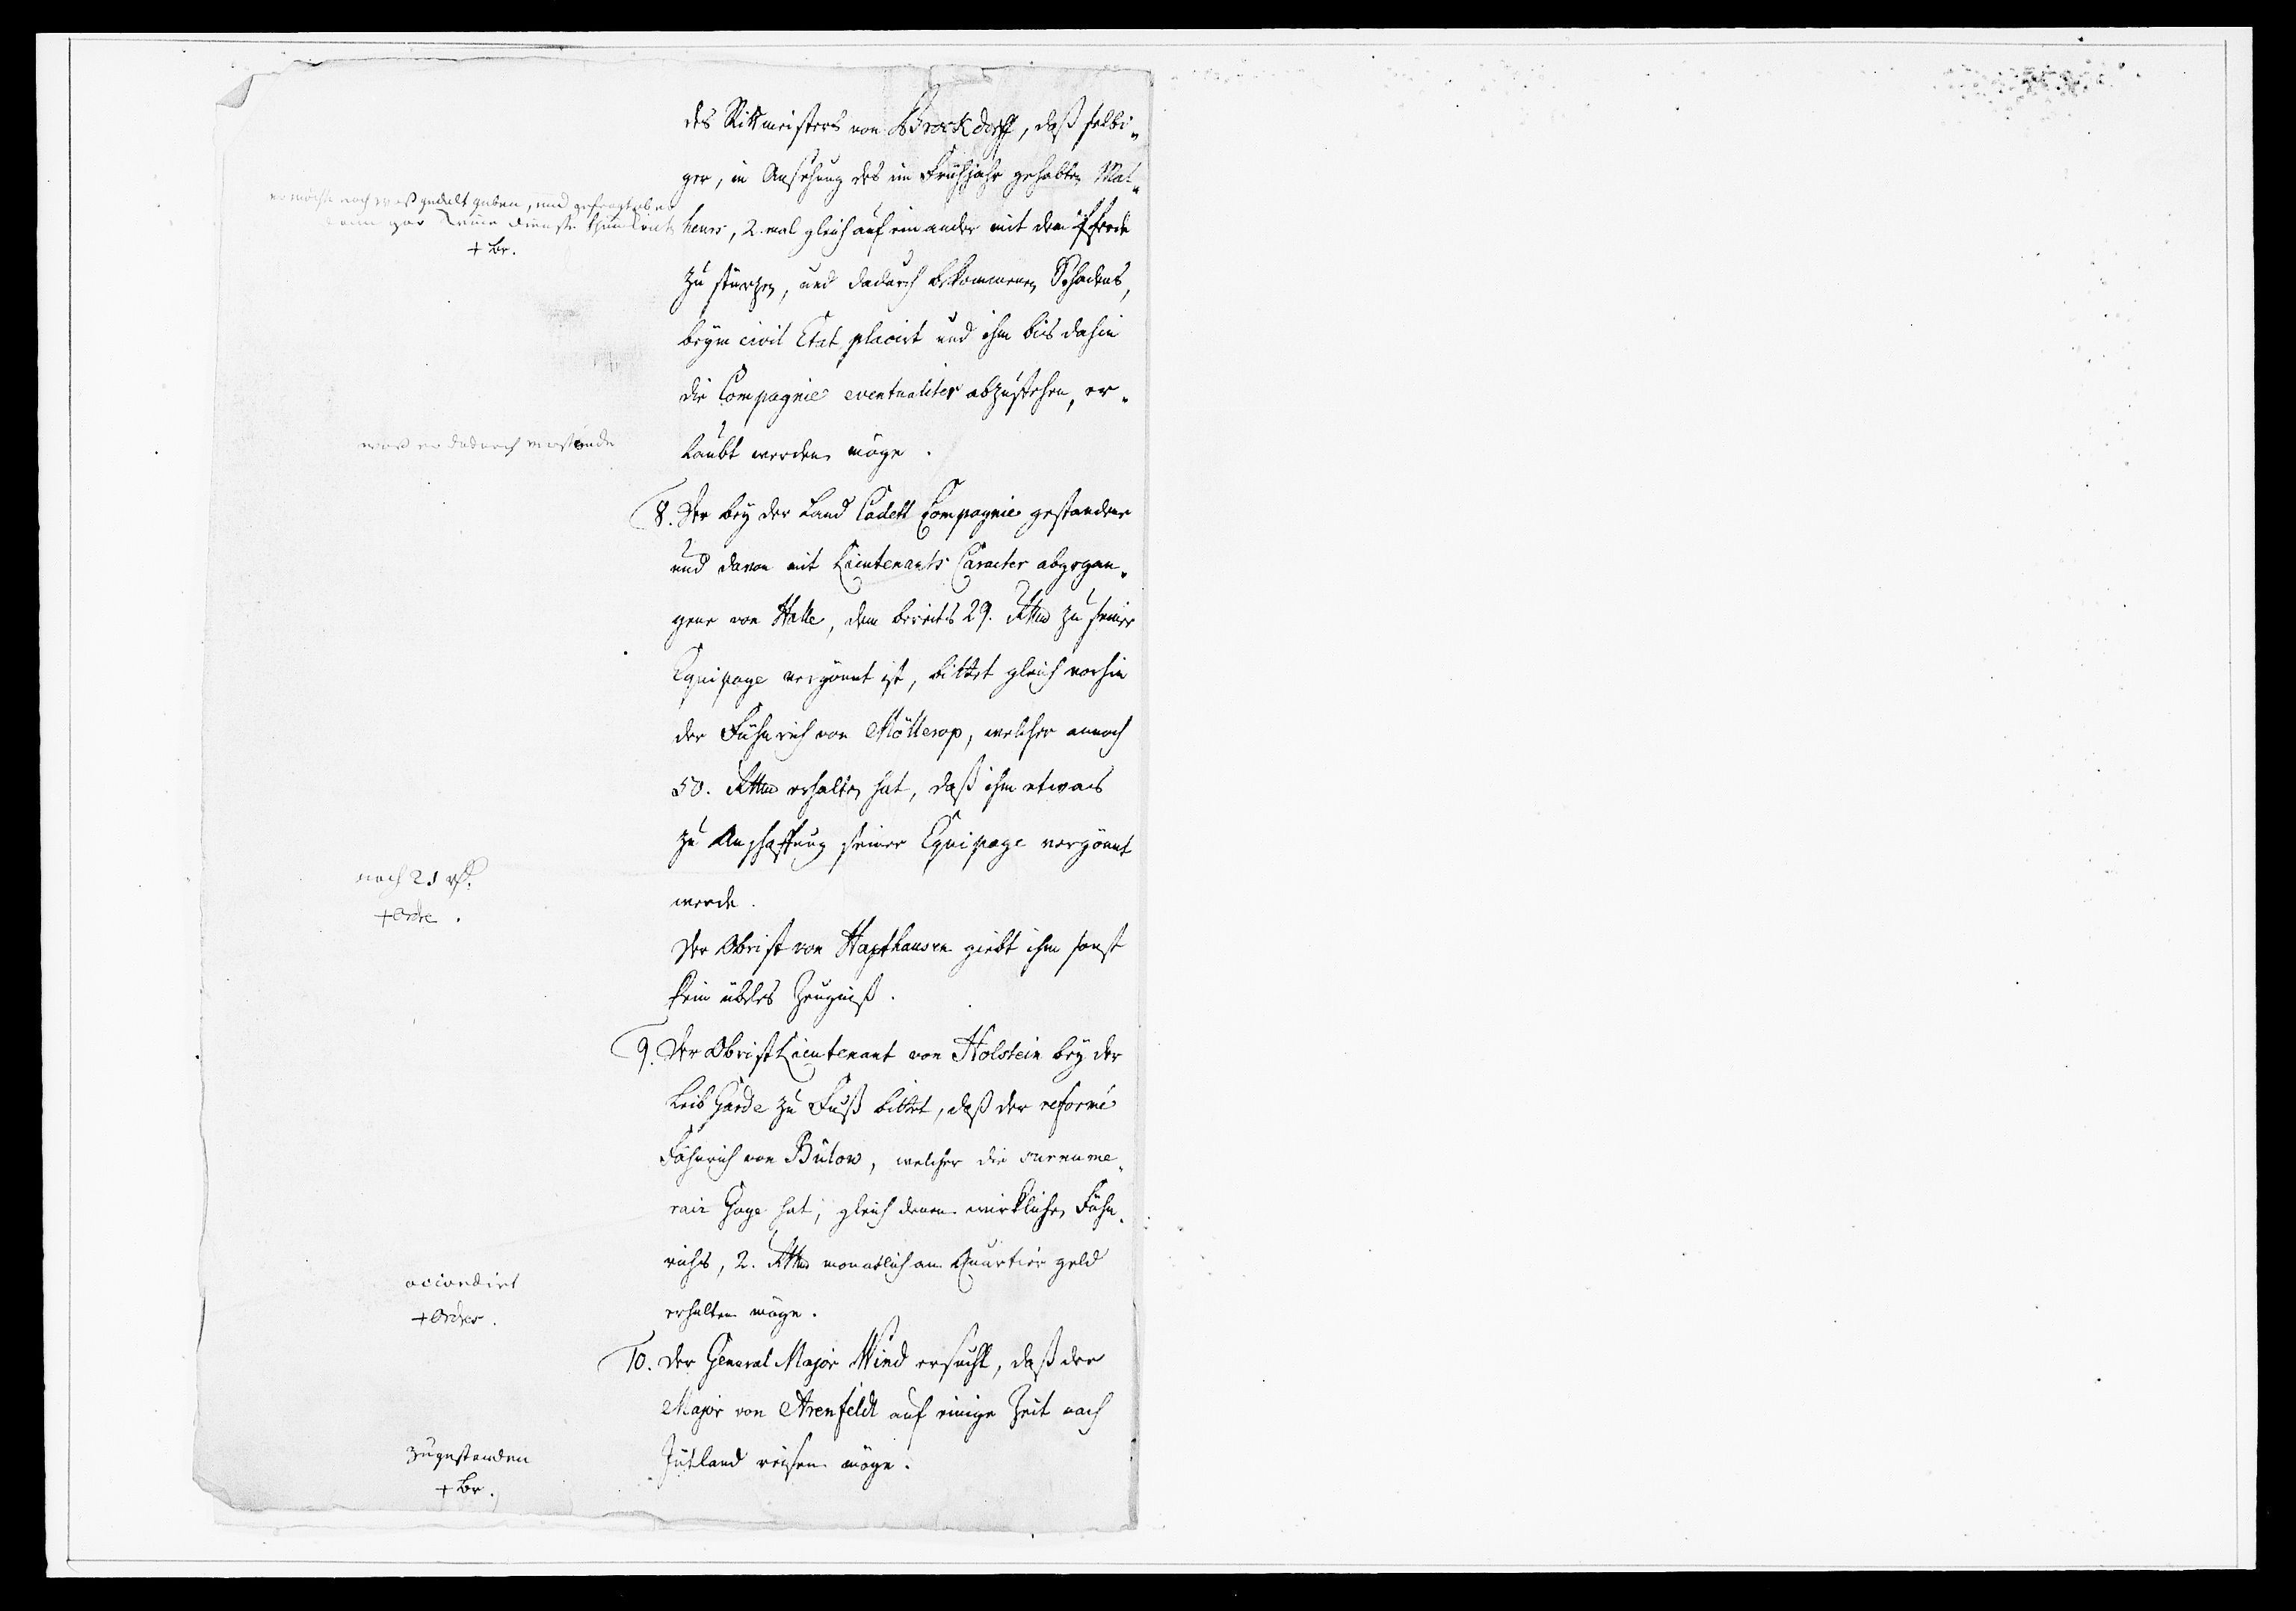 des Rittmeisters von Brockdorff, daß selbi-
ger, in Ansehung des im Frühjahr gehabten Mal-
heurs, 2. mal gleich auf einander mit dem Pferde
zu stürzen, und dadurch bekommenen Schadens,
beym civil Etat placirt und ihm bis dahin
die Compagnie eventualiter abzustehen, er-
laubt werden möge.
er möchte noch gedult haben, und
keine Dienste thun
+ Br.
was er dadurch verstünde
8. Der bey der Land Cadett Compagnie gestandene
und davon mit Lieutenants Caracter abgegan-
gene von Halle, dem bereits 29. Rthlr zu seiner
Equipage vergönnt ist, bittet gleich vorhin
der Fähnrich von Möllerop, welcher annoch
50. Rthlr erhalten hat, daß ihm etwas
zu Anschaffung seiner Equipage vergönnt
werde.
noch 21 rthl.
+ Ordre.
Der Obrist von Haxthausen giebt ihm sonst
kein übeles Zeugniß.
9. Der Obrist Lieutenant von Holstein bey der
Leib Garde zu Fuß bittet, daß der reformé
Fähnrich von Bülow, welcher die surnume-
rair Gage hat, gleich denen wirklichen Fähn-
richs, 2. Rthlr monatlich an Quartier geld
erhalten möge.
accordirt
+ Ordres.
10. Der General Major Wind ersucht, daß der
Major von Arenfeldt auf einige Zeit nach
Jütland reisen möge.
zugestanden
+ Br.